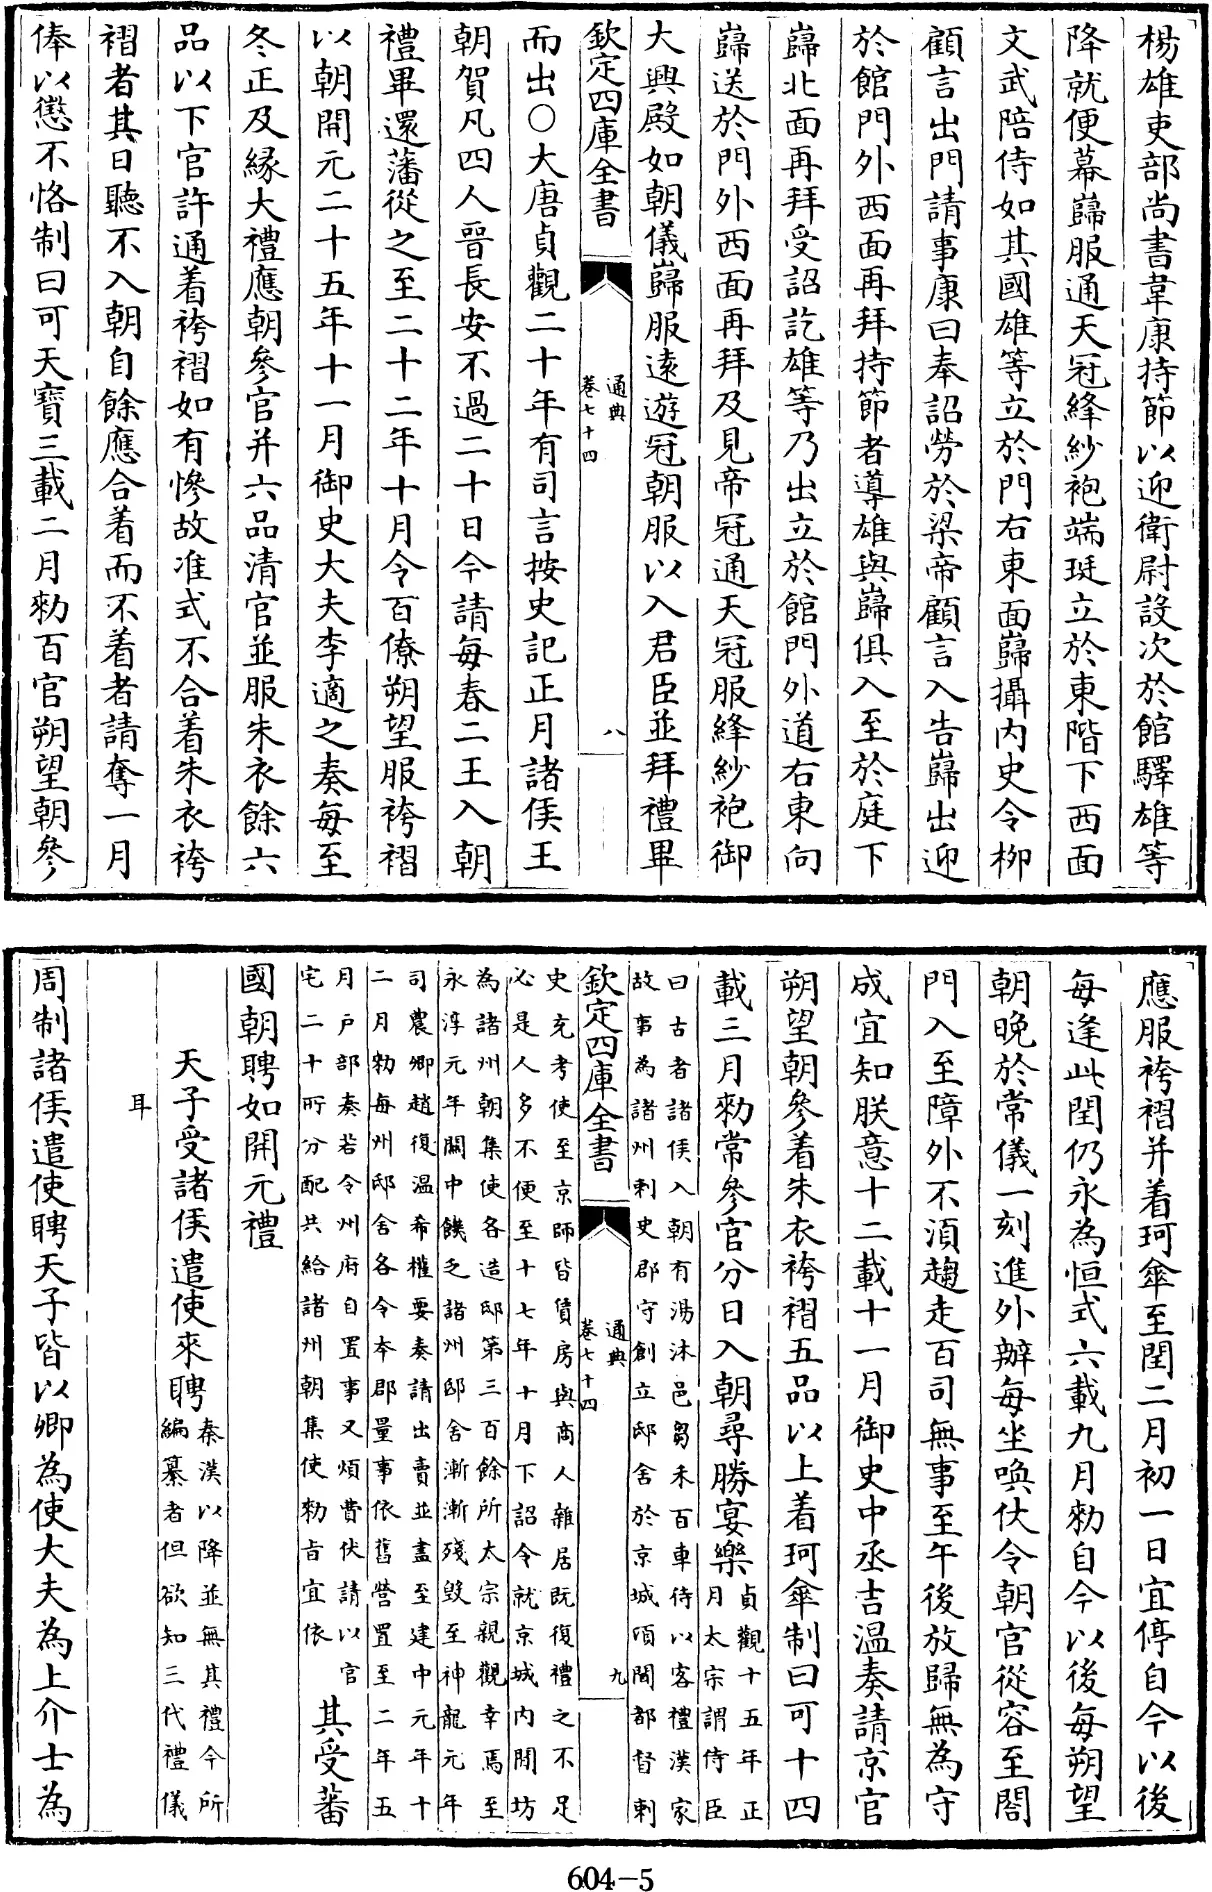 楊雄吏部尚書韋康持節以迎衛尉設次於館驛雄等
降就便幕巋服通天冠絳紗袍端珽立於東階下西面
文武陪侍如其國雄等立於門右東面巋攝内史令柳
顧言出門請事康曰奉詔勞於梁帝顧言入告巋出迎
於館門外西面再拜持節者導雄與巋俱入至於庭下
巋北面再拜受詔訖雄等乃出立於館門外道右東向
巋送於門外西面再拜及見帝冠通天冠服絳紗袍御
大興殿如朝儀巋服逺遊冠朝服以入君臣並拜禮畢
欽定四庫全書
通典
卷七十四
八
而出○大唐貞觀二十年有司言按史記正月諸侯王
朝賀凡四人晉長安不過二十日今請每春二王入朝
禮畢還藩從之至二十二年十月令百僚朔望服袴褶
以朝開元二十五年十一月御史大夫李適之奏每至
冬正及緣大禮應朝參官并六品清官並服朱衣餘六
品以下官許通着袴褶如有慘故准式不合着朱衣袴
褶者其日聽不入朝自餘應合着而不着者請奪一月
俸以懲不恪制曰可天寶三載二月勑百官朔望朝參
應服袴褶并着珂傘至閏二月初一日宜停自今以後
每逢此閏仍永為恒式六載九月勑自今以後每朔望
朝晚於常儀一刻進外辦每坐喚仗令朝官從容至閤
門入至障外不須趨走百司無事至午後放歸無為守
成宜知朕意十二載十一月御史中丞吉温奏請京官
朔望朝參着朱衣袴褶五品以上着珂傘制曰可十四
載三月勑常參官分日入朝尋勝宴樂
貞觀十五年正
月太宗謂侍臣
曰古者諸侯入朝有湯沐邑芻禾百車待以客禮漢家
故事為諸州刺史郡守創立邸舍於京城頃聞都督刺
欽定四庫全書
通典
卷七十四
九
史充考使至京師皆賃房與商人雜居既復禮之不足
必是人多不便至十七年十月下詔令就京城内閒坊
為諸州朝集使各造邸第三百餘所太宗親觀幸焉至
永淳元年關中饑乏諸州邸舍漸漸殘毀至神龍元年
司農卿趙復温希權要奏請出賣並盡至建中元年十
二月勑每州邸舍各令本郡量事依舊營置至二年五
月户部奏若令州府自置事又煩費伏請以官
宅二十所分配共給諸州朝集使勑旨宜依
其受蕃
國朝聘如開元禮
天子受諸侯遣使來聘
秦漢以降並無其禮今所
編纂者但欲知三代禮儀
耳
周制諸侯遣使聘天子皆以卿為使大夫為上介士為
604-5